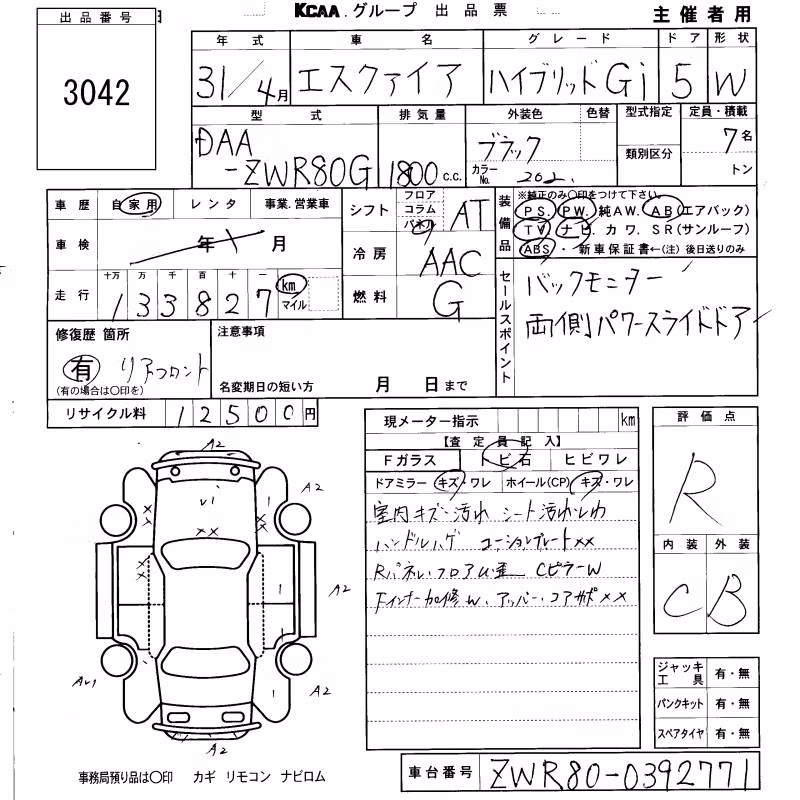 出品番号
3042
KCAA.グループ 出品票
主催者用
年式 車名 グレード ドア 形状
31/4月 エスクァイア ハイブリッドGi 5 W
型式 排気量 外装色 色替 型式指定 定員・積載
DAA
-ZWR80G 1800 c.c. ブラック カラーNo. 202 類別区分 7名
トン
車歴 自家用 レンタ 事業.営業車
車検 年 月
走行 十万 万 千 百 十 一
133827 km マイル
シフト フロア コラム パネル AT
冷房 AAC
燃料 G
装備品 ※純正のみ〇印をつけて下さい。
P S. P W. 純A W. A B (エアバック)
T V ナビ. カ ワ. S R (サンルーフ)
ABS・ 新車保証書←(注) 後日送りのみ
セールスポイント
バックモニター
両側パワースライドドア
修復歴 箇所
有 リア フロント
(有の場合は〇印を)
注意事項
名変期日の短い方 月 日まで
リサイクル料 12500円
現メーター指示 km
【査定員記入】
Fガラス トビ石 ヒビワレ
ドアミラー キズ・ワレ ホイール(CP) キズ・ワレ
室内キズ・汚れ シート汚れシワ
ハンドルハゲ コーションプレートXX
Rパネル.フロアム歪 CピラーW
Fインナー加修W.アッパー.コアサポXX
評価点
R
内装 外装
C B
ジャッキ工具 有・無
パンクキット 有・無
スペアタイヤ 有・無
A2
A2
A2
A2
A2
v1
XX
事務局預り品は〇印 カギ リモコン ナビロム
車台番号 ZWR80-0392771